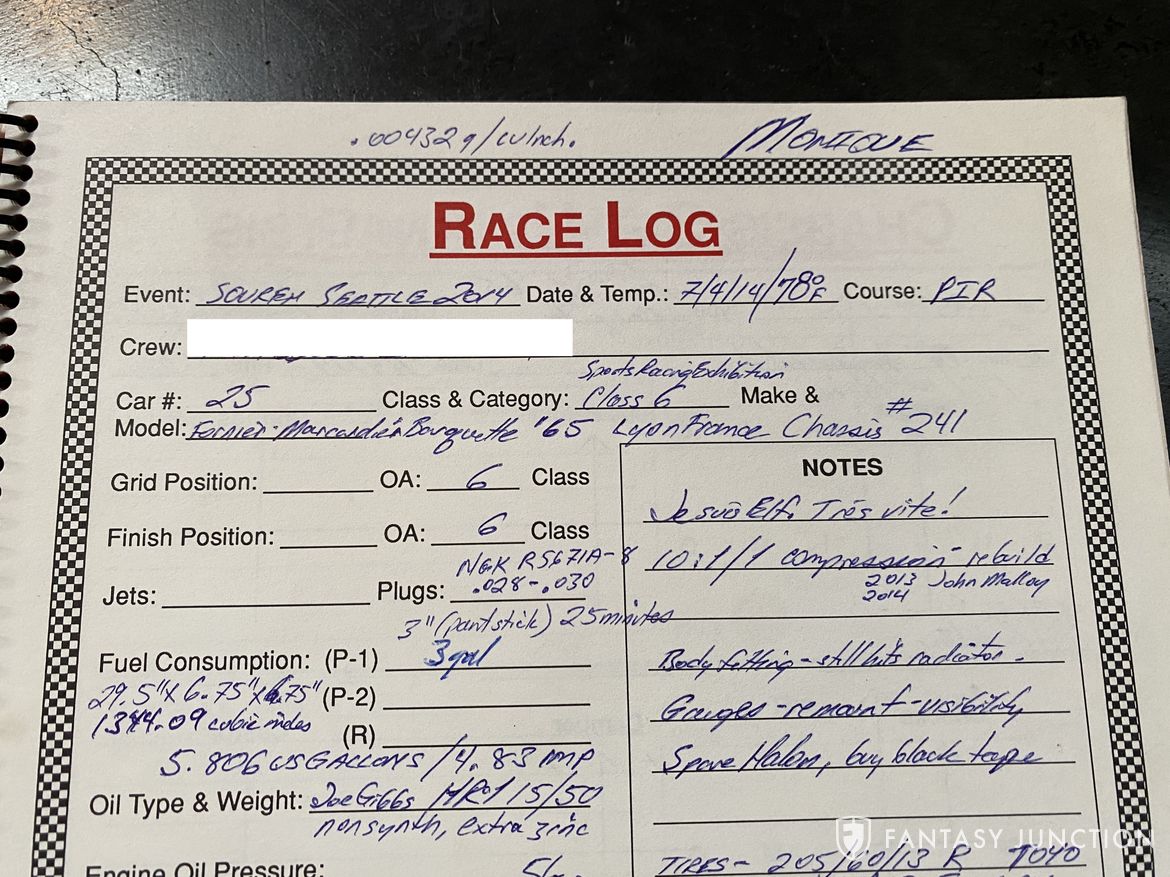 .004329/cu inch.
MONIQUE
RACE LOG
Event: SOVREN SEATTLE 2014 Date & Temp.: 7/4/14/78°F Course: PIR
Crew:
Sports Racing Exhibition
Car #: 25 Class & Category: Class 6 Make &
Model: Fournier-Marcadier Barquette '65 Lyon France Chassis #241
Grid Position: OA: 6 Class
Finish Position: OA: 6 Class
NGK R5671A-8
Jets: Plugs: .028-.030
3" (paint stick) 25 minutes
Fuel Consumption: (P-1) 3 gal
29.5"X 6.75"X 6.75" (P-2)
1344.09 cubic inches
(R)
5.806 US GALLONS/4.83 IMP
Oil Type & Weight: Joe Gibbs HR1 15/50
nonsynth, extra zinc
Engine Oil Pressure:
NOTES
Je suis Elf. Très vite!
10:1/1 compression - rebuild
2013 John Malloy
2014
Body fitting - still hits radiator.
Gauges - remount - visibility
Spare Halon, buy black tape
TIRES - 205/60/13 R TOYO
FANTASY JUNCTION